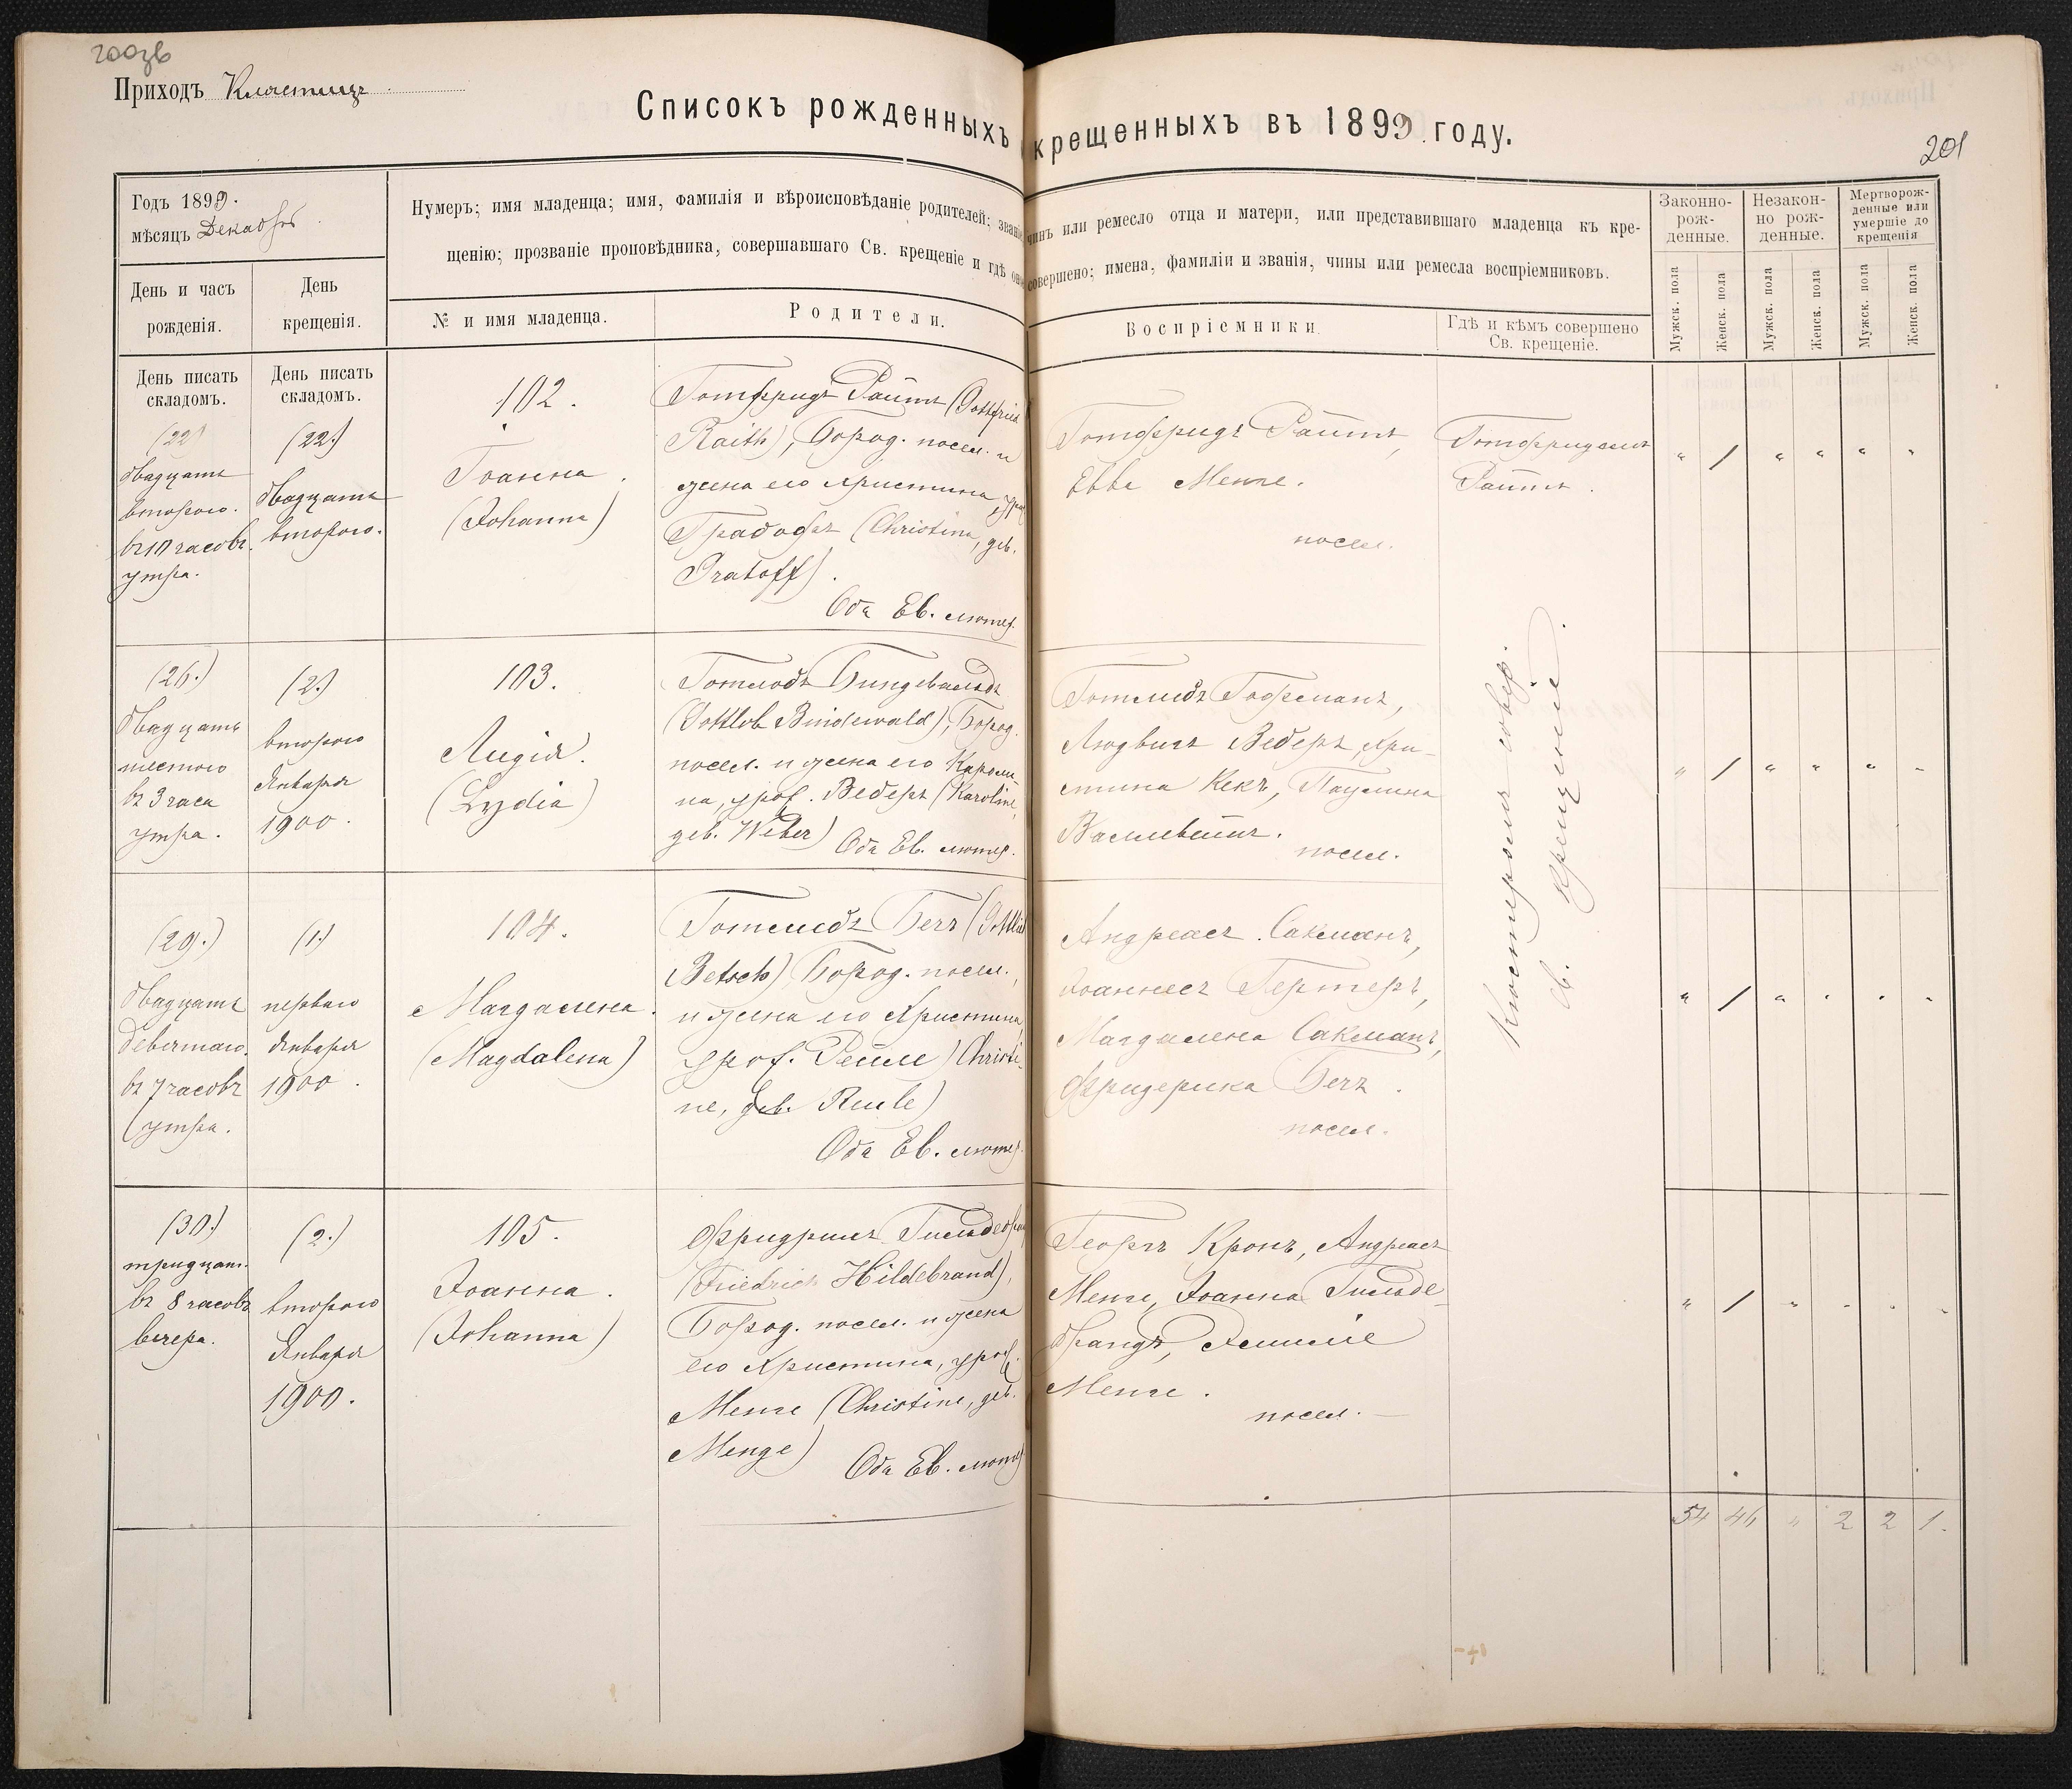 200 об
Приходъ Кластицъ
Списокъ рожденныхъ
крещенныхъ въ 1899 году.
201
Годъ 1899.
мѣсяцъ Декабрь
Нумеръ; имя младенца; имя, фамилія и вѣроисповѣданіе родителей; званіе
чинъ или ремесло отца и матери, или представившаго младенца къ кре-
щенію; прозваніе проповѣдника, совершавшаго Св. крещеніе и гдѣ оное
совершено; имена, фамиліи и званія, чины или ремесла воспріемниковъ.
Законно-
рож-
денные.
Незакон-
но рож-
денные.
Мертворож-
денные или
умершіе до
крещенія
День и часъ
рожденія.
День
крещенія.
№ и имя младенца.
Родители.
Воспріемники.
Гдѣ и кѣмъ совершено
Св. крещеніе.
Мужск. пола
Женск. пола
Мужск. пола
Женск. пола
Мужск. пола
Женск. пола
День писать
складомъ.
День писать
складомъ.
(22)
двадцать
второго.
въ 10 часовъ
утра.
(22.)
двадцать
второго.
102.
Іоанна.
(Johanna)
Готфридъ Райтъ (Gottfried
Raith), Бород. посел. и
жена его Христина, урож.
Градофъ (Christina, geb.
Gratoff).
Оба Ев. лютер.
Готфридъ Райтъ,
Евва Менге.
посел.
Готфридомъ
Райтъ.
" / " " " "
(26.)
двадцать
шестого
въ 3 часа
утра.
(2.)
второго
Января
1900.
103.
Лидія.
(Lydia)
Готлобъ Биндевальдъ
(Gottlob Bindewald), Бород.
посел. и жена его Кароли-
на, урож. Веберъ (Karoline,
geb. Weber) Оба Ев. лютер.
Готлибъ Гофманъ,
Людвигъ Веберъ, Хри-
стина Кекъ, Паулина
посел.
" / " " " "
(29.)
двадцать
девятаго.
въ 7 часовъ
утра.
(1.)
перваго
Января
1900.
104.
Магдалена.
(Magdalena)
Готлибъ Бечъ (Gottlieb
Betsch) Бород. посел.,
и жена его Христина,
урож. Рейле) Christi-
ne, geb. Reule)
Оба Ев. лютер.
Андреасъ Сакманъ,
Іоаннесъ Гертеръ,
Магдалена Сакманъ,
Фридерика Бечъ.
посел.
" / " " " "
(30.)
тридцат.
въ 8 часовъ
вечера.
(2.)
второго
Января
1900.
105.
Іоанна.
(Johanna)
Фридрихъ Гильдебранд
(Friedrich Hildebrand),
Бород. посел. и жена
его Христина, урож.
Менге (Christine, geb.
Menge) Оба Ев. лютер.
Георгъ Кронъ, Андреасъ
Менге, Іоанна Гильде-
брандъ, Эмиліе
Менге.
посел.
" / " " " "
Кюстеромъ совер.
св. крещеніе.
54 46 " 2 2 1.